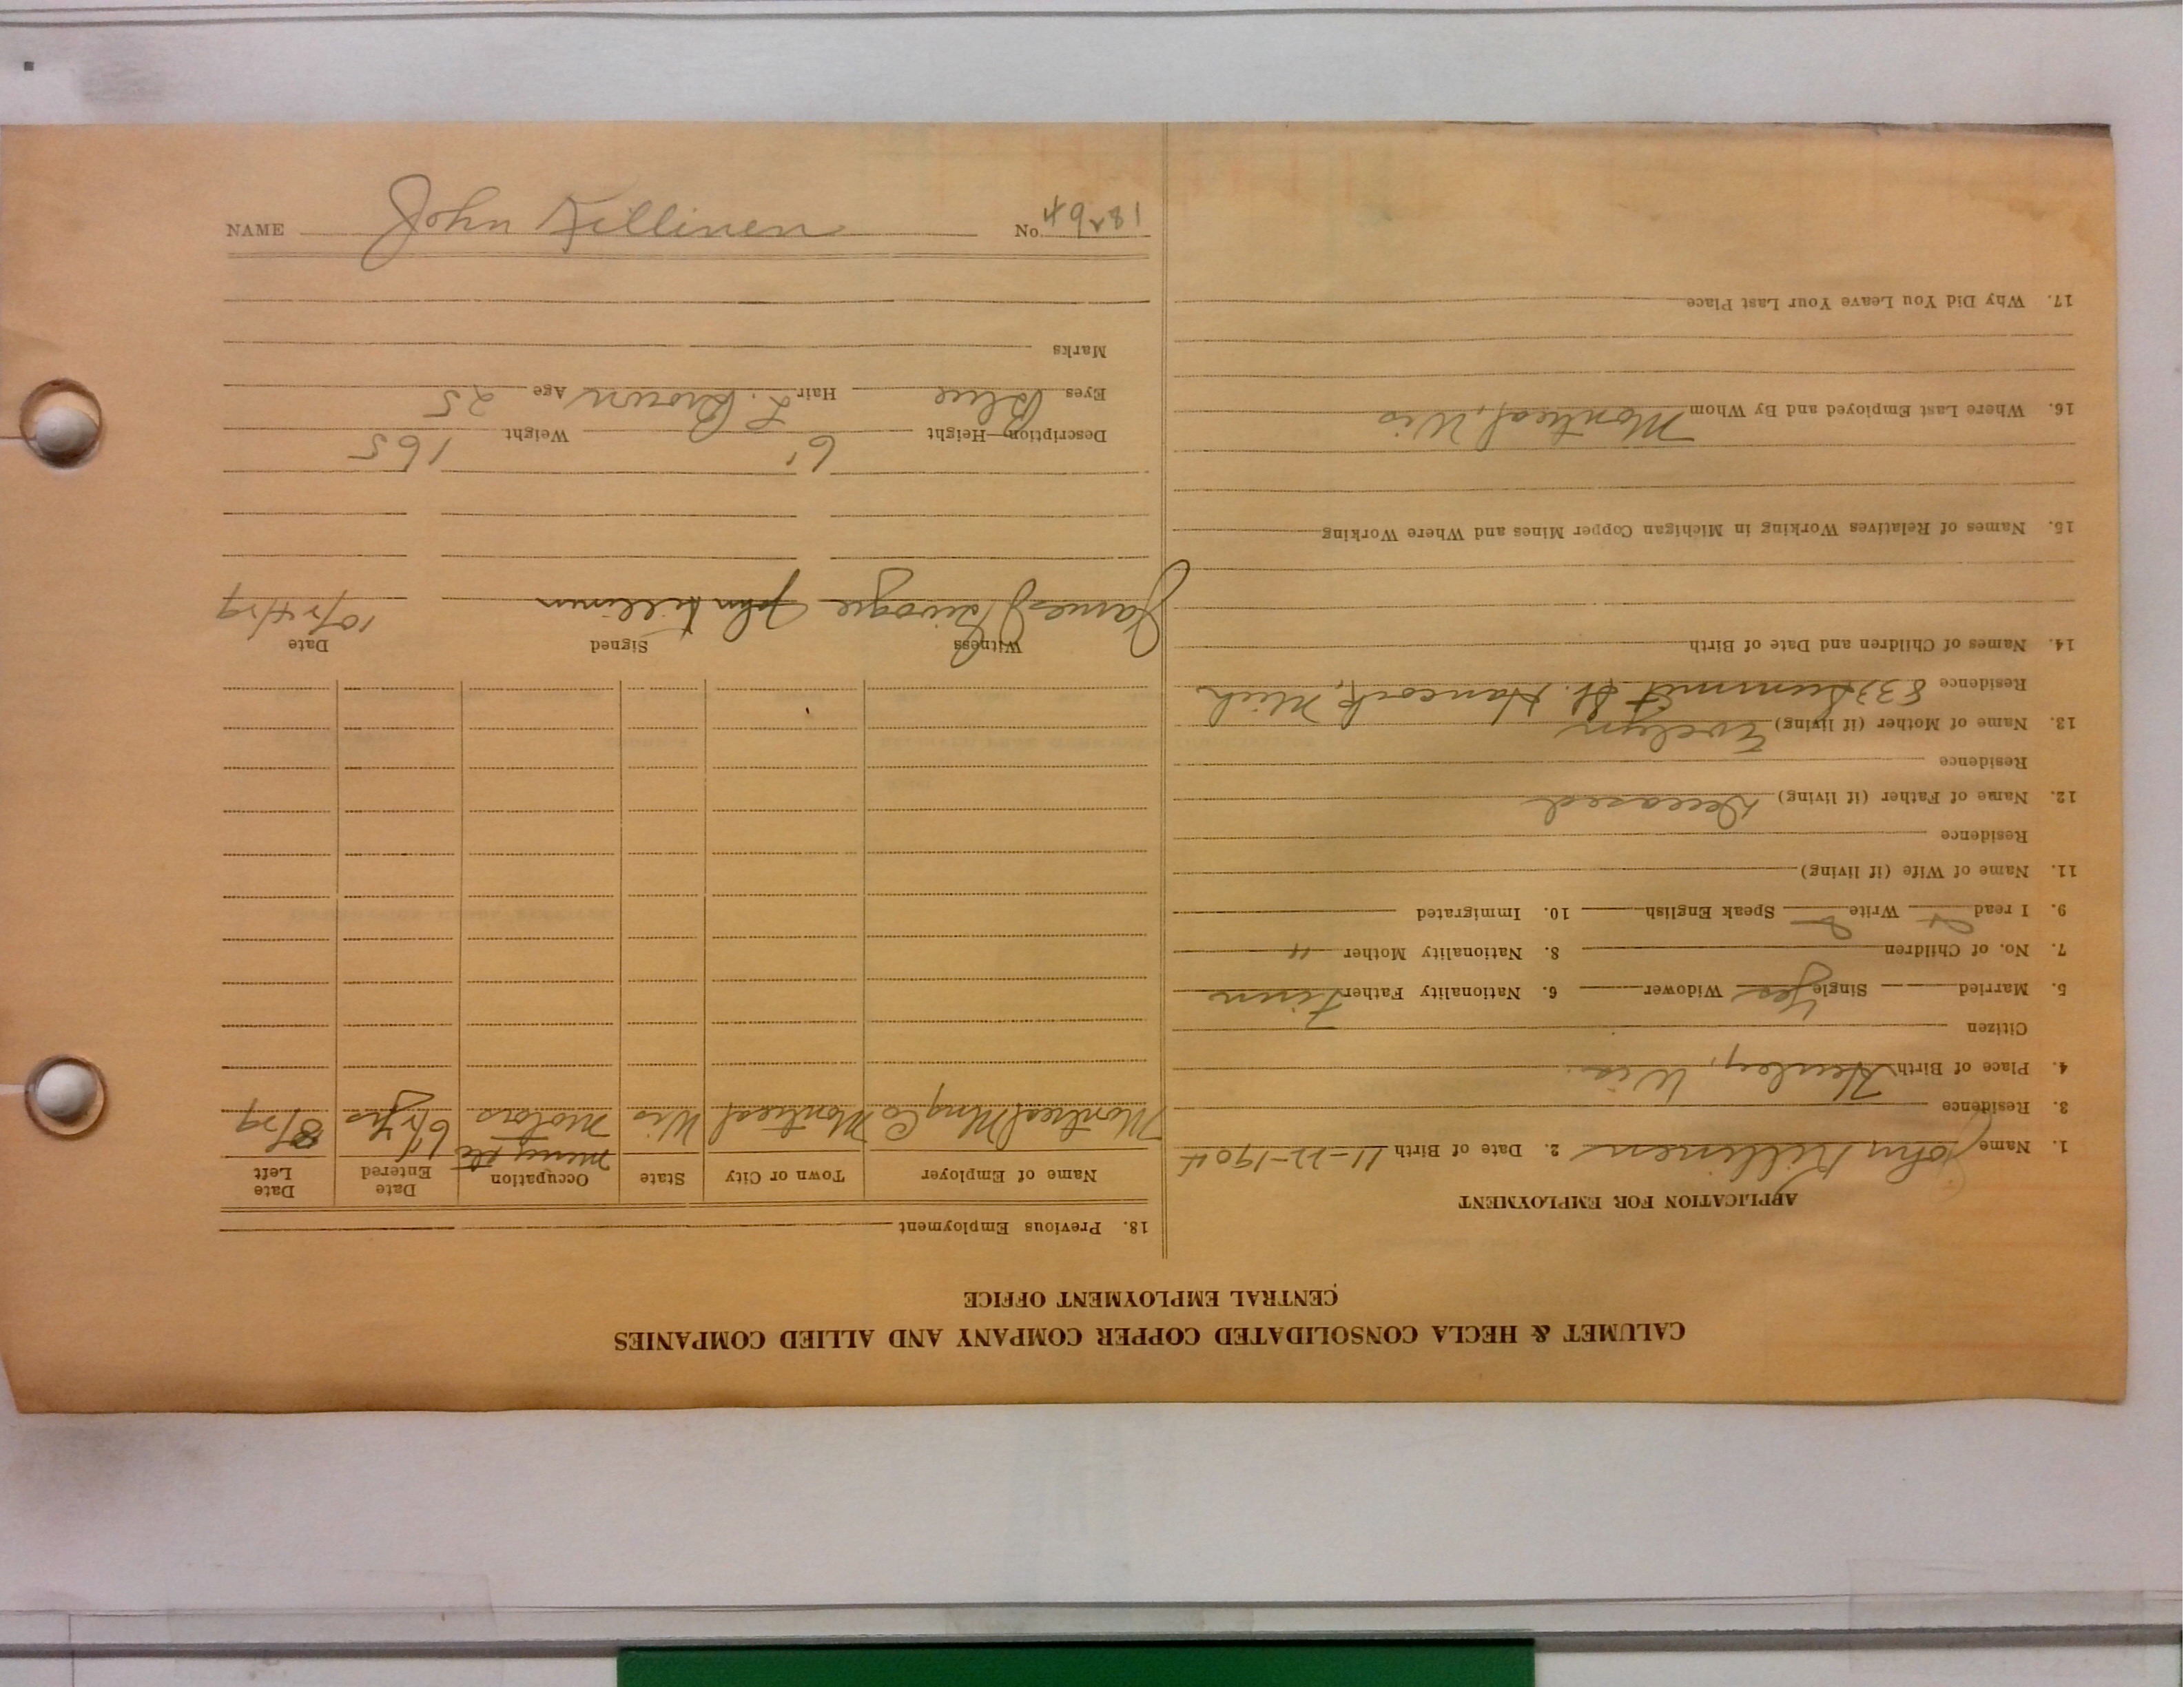 CALUMET & HECLA CONSOLIDATED COPPER COMPANY AND ALLIED COMPANIES
CENTRAL EMPLOYMENT OFFICE
APPLICATION FOR EMPLOYMENT
1. Name John Killinen 2. Date of Birth 11-22-1904
3. Residence
4. Place of Birth Hurley, Wis.
Citizen
5. Married Single Yes Widower 6. Nationality Father Finn
7. No. of Children 8. Nationality Mother "
9. I read Write Speak English 10. Immigrated
11. Name of Wife (if living)
Residence
12. Name of Father (if living) Deceased
Residence
13. Name of Mother (if living) Evelyn
Residence 833 Summit St. Hancock, Mich
14. Names of Children and Date of Birth
15. Names of Relatives Working in Michigan Copper Mines and Where Working
16. Where Last Employed and By Whom Montreal, Wis
17. Why Did You Leave Your Last Place
18. Previous Employment
Name of Employer Town or City State Occupation Date Entered Date Left
Montreal Mng Co Montreal Wis Motors 6 1/2 yrs 8/29
Witness Signed Date
James John Killinen 10/24/29
Description—Height 6' Weight 165
Eyes Blue Hair L. Brown Age 25
Marks
NAME John Killinen No. 49281